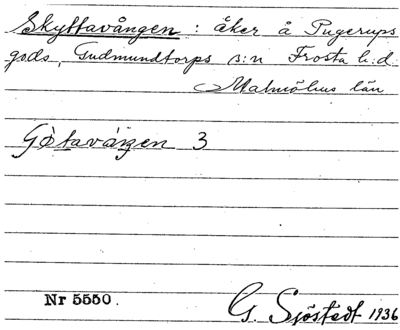 Skyttavången : åker å Pugerups
gods, Gudmundtorps s:n Frosta h:d
Malmöhus län
Götavången 3
Nr 5550.
G. Sjöstedt 1936